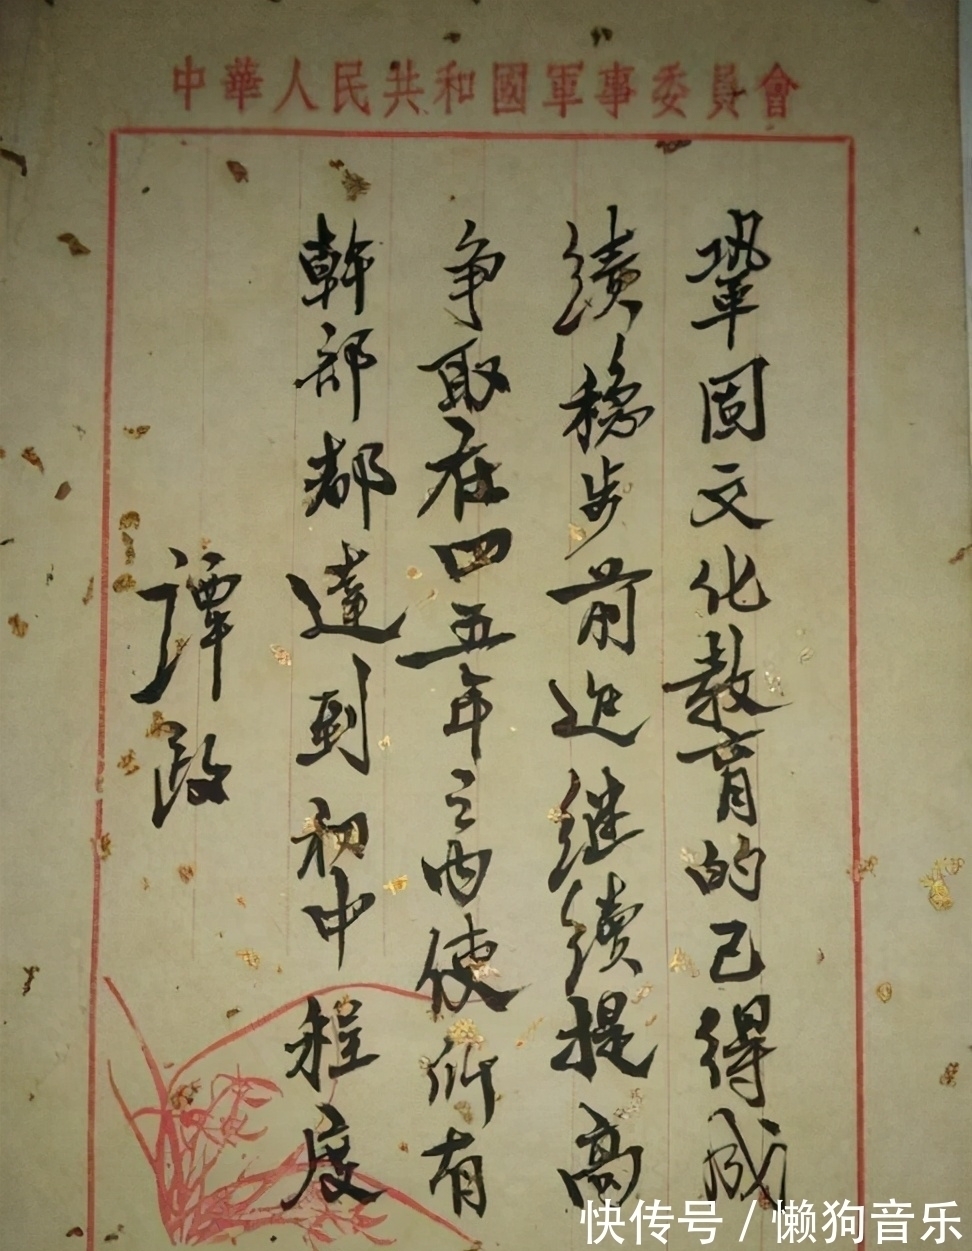 中華人民共和國軍事委員會
鞏固文化教育的已得成
绩稳步前进继续提高
争取在四五年之内使所有
幹部都達到初中程度
譚政
快传号 / 懒狗音乐